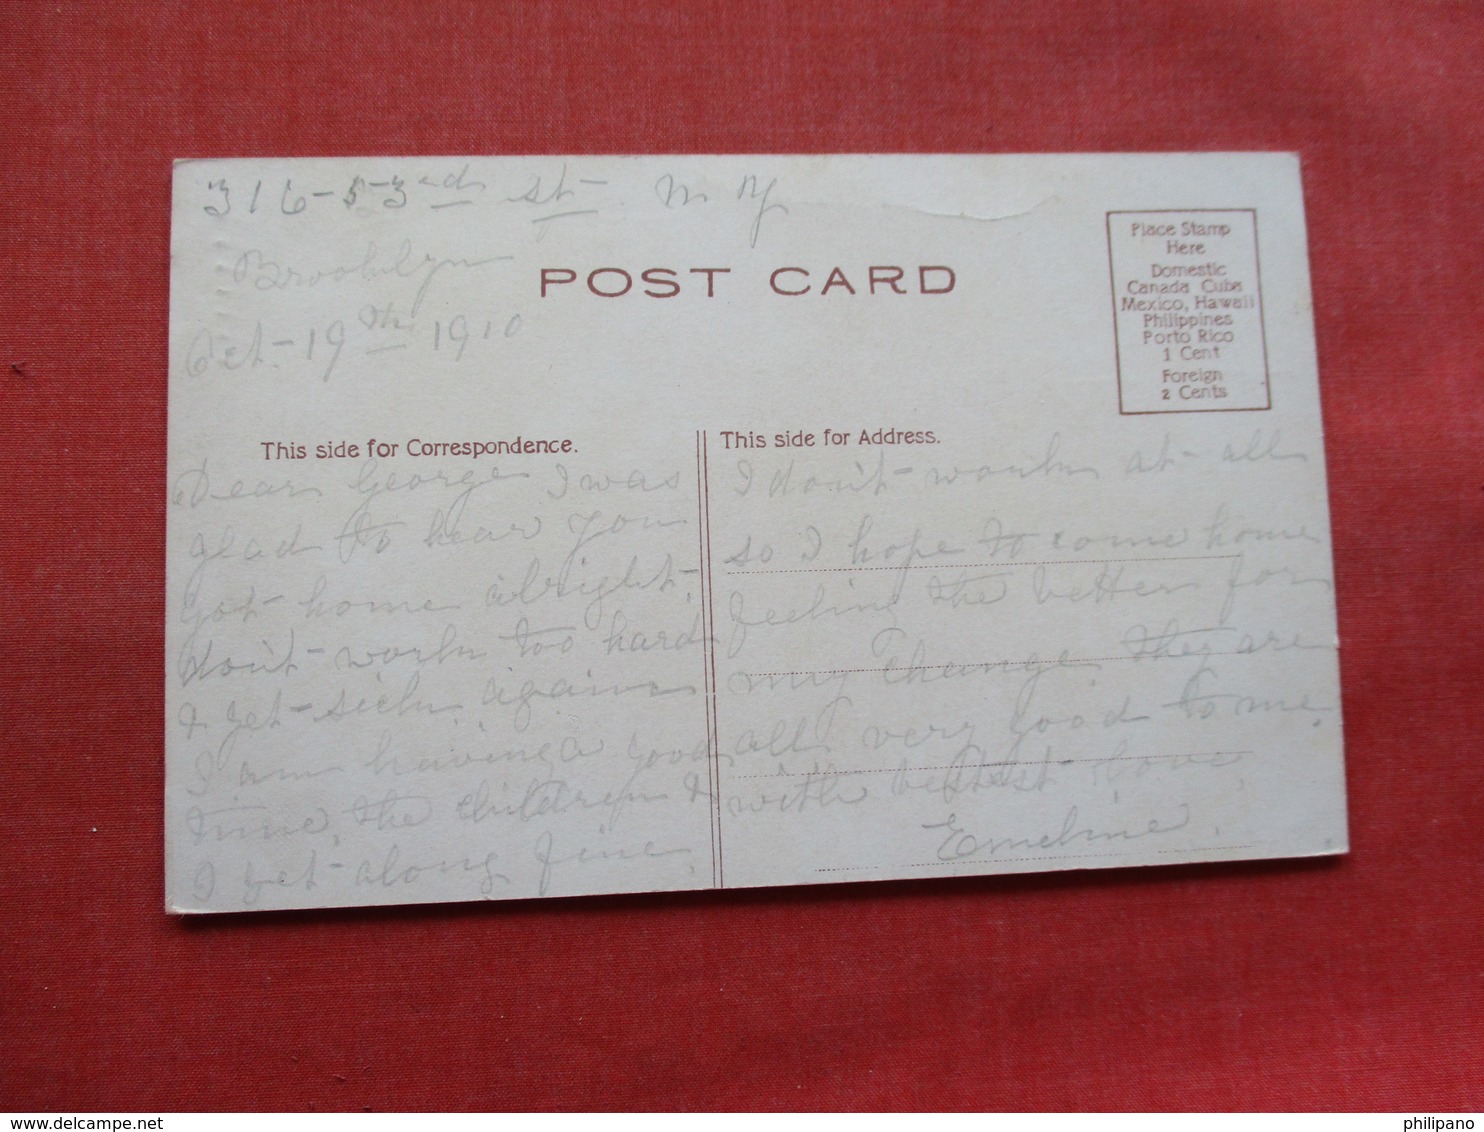 316-53rd st- N Y
Brooklyn
Oct-19th 1910
POST CARD
Place Stamp
Here
Domestic
Canada Cuba
Mexico, Hawaii
Philippines
Porto Rico
1 Cent
Foreign
2 Cents
This side for Correspondence.
Dear George I was
glad to hear you
got home alright,
don't work too hard
& get sick again
I am having a good
time, the children &
I get along fine,
This side for Address.
I don't work at all
so I hope to come home
feeling the better for
my change. They are
all very good to me,
with best love,
Emeline.
philipano